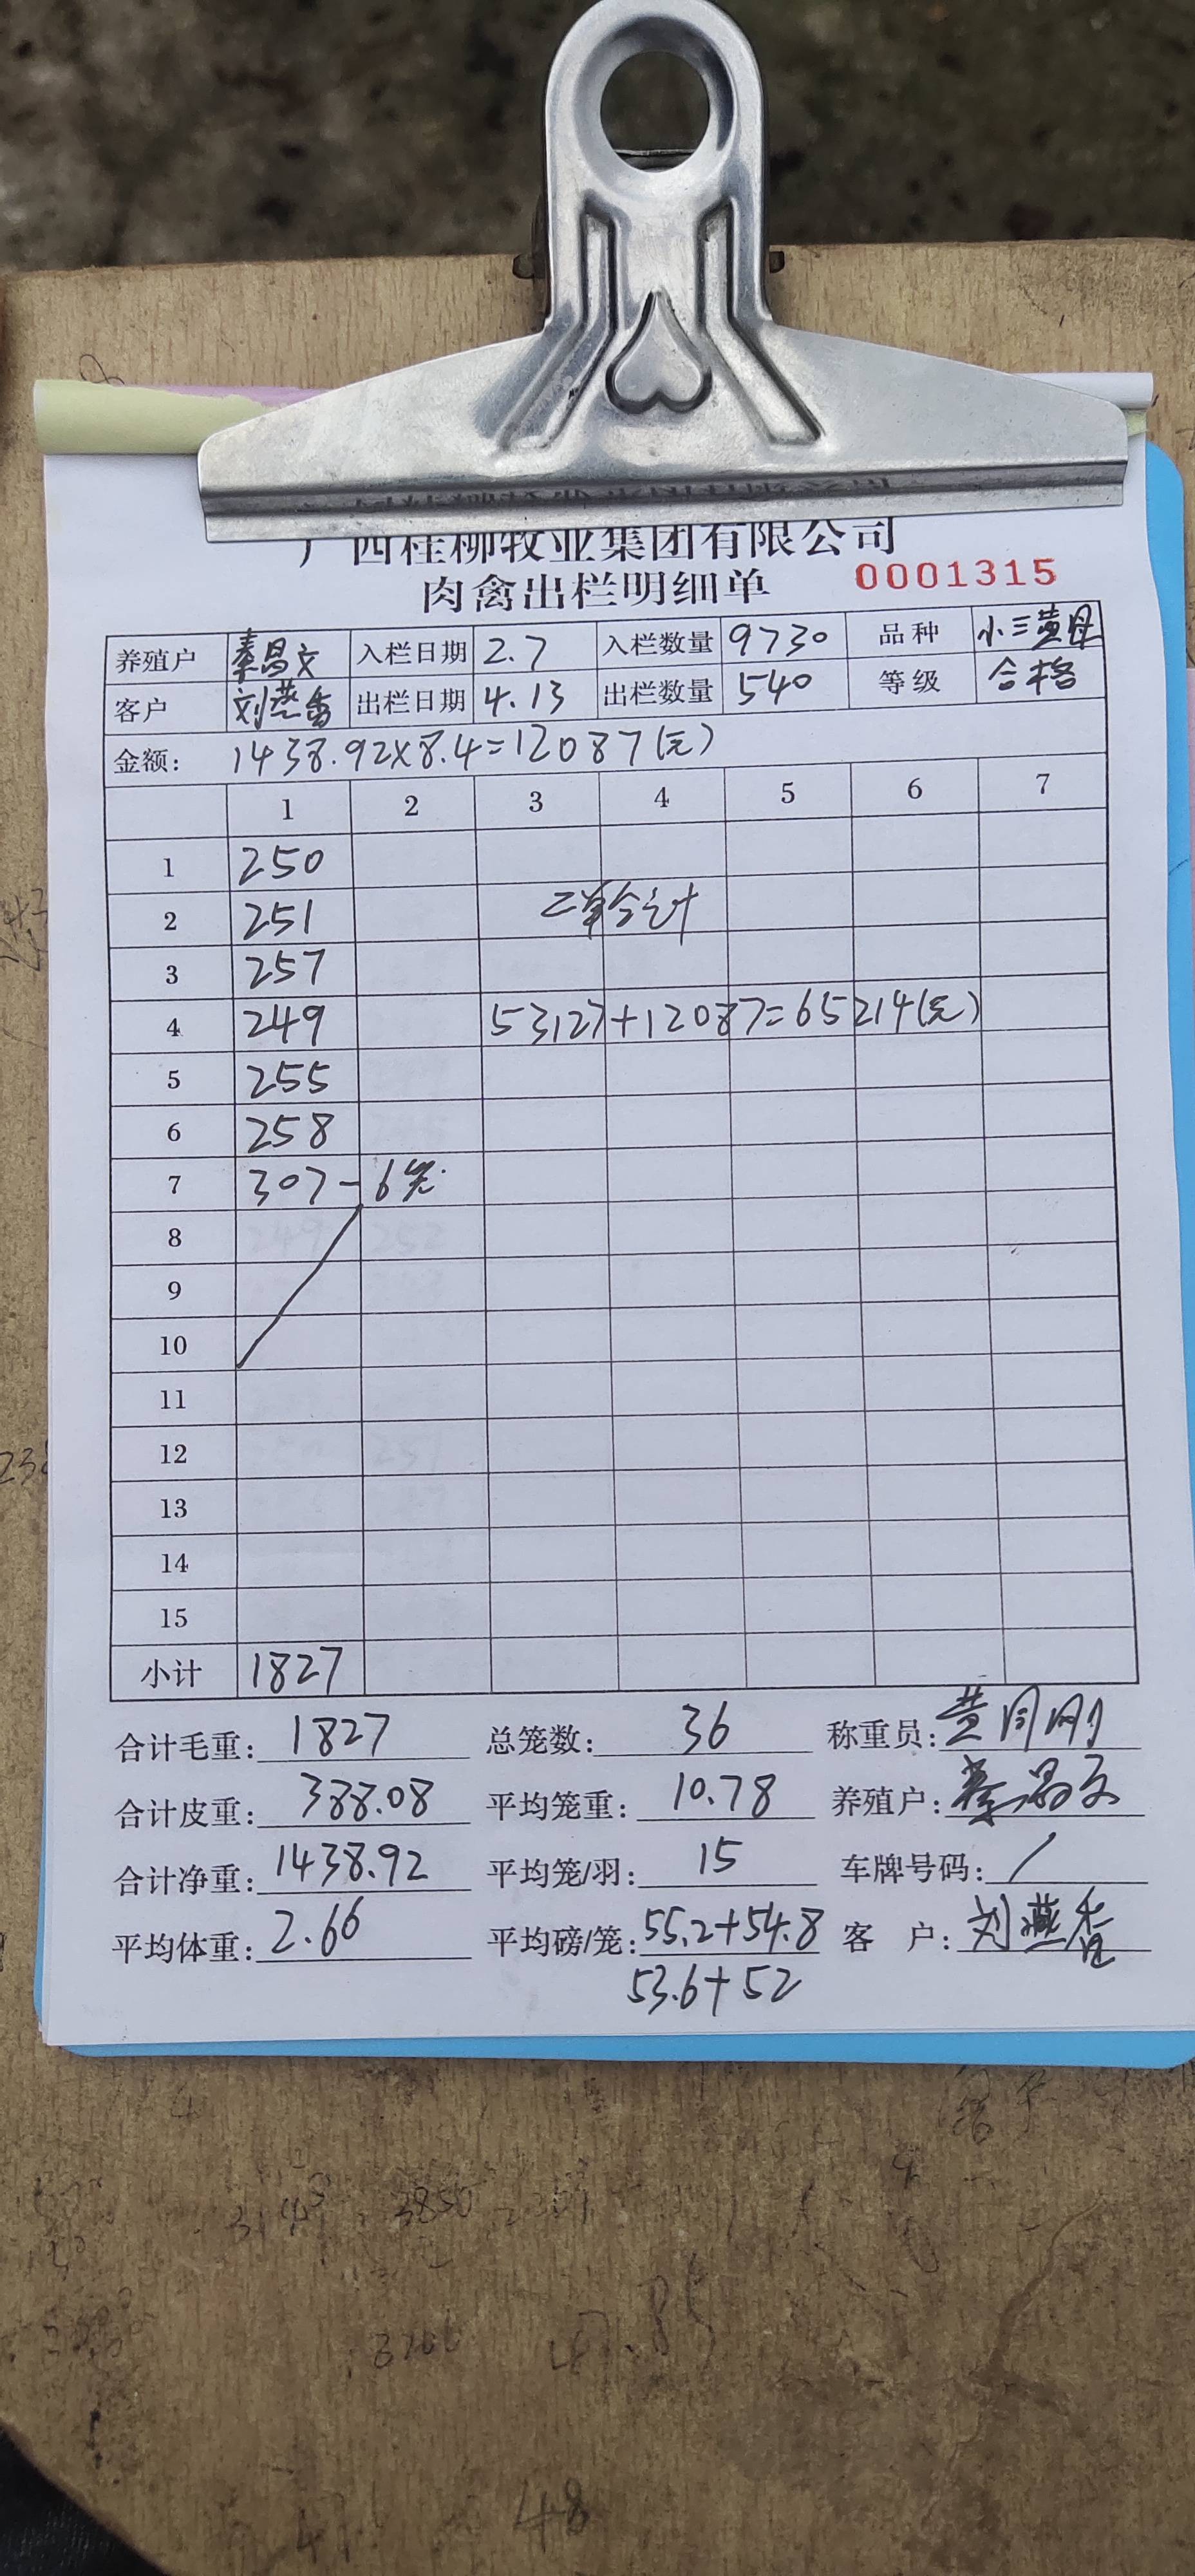 广西桂柳牧业集团有限公司
肉禽出栏明细单 0001315
养殖户 秦昌文 入栏日期 2.7 入栏数量 9730 品种 小三黄母
客户 刘燕香 出栏日期 4.13 出栏数量 540 等级 合格
金额: 1438.92×8.4=12087(元)
1 2 3 4 5 6 7
1 250
2 251 二单合计
3 257
4 249 53127+12087=65214(元)
5 255
6 258
7 307-6笼
8
9
10
11
12
13
14
15
小计 1827
合计毛重: 1827 总笼数: 36 称重员:
合计皮重: 388.08 平均笼重: 10.78 养殖户: 秦昌文
合计净重: 1438.92 平均笼/羽: 15 车牌号码: /
平均体重: 2.66 平均磅/笼: 55.2+54.8 客 户: 刘燕香
53.6+52
48